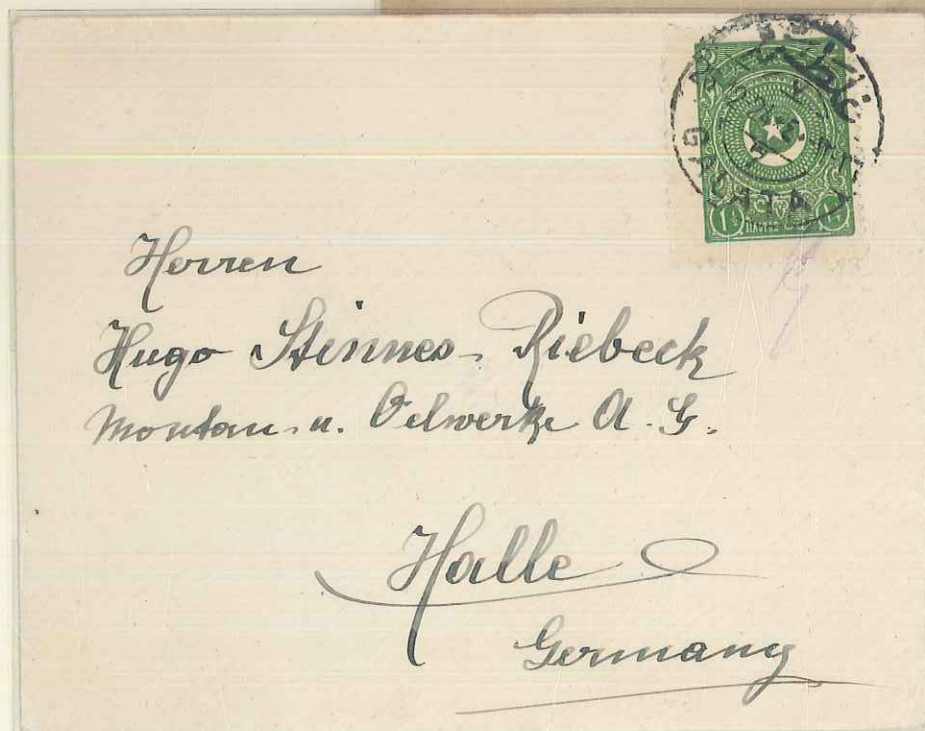 Herren
Hugo Stinnes-Riebeck
Montan- u. Oelwerke A. G.
Halle
Germany